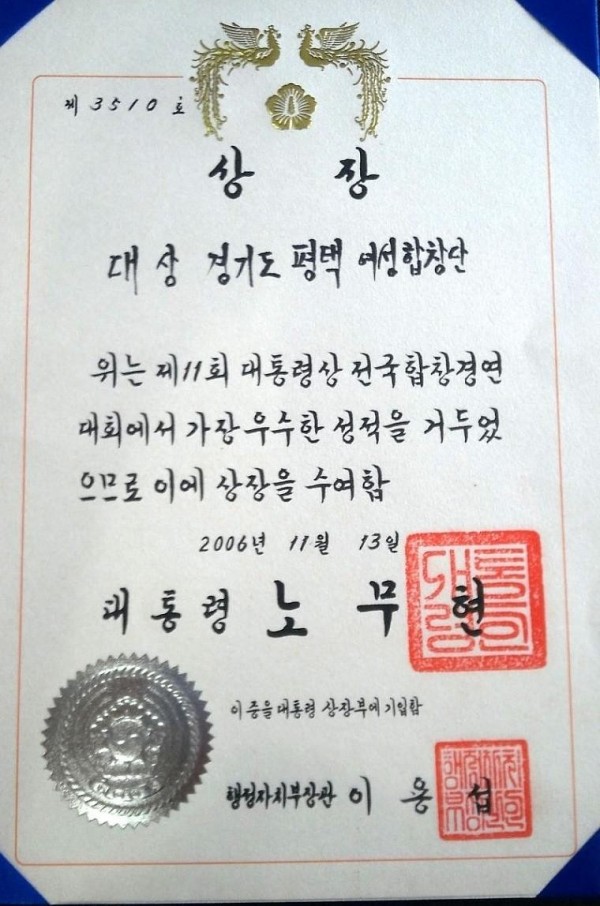 제 3510 호
상 장
대상 경기도 평택 여성합창단
위는 제11회 대통령상 전국합창경연
대회에서 가장 우수한 성적을 거두었
으므로 이에 상장을 수여함
2006년 11월 13일
대통령 노 무 현
이 증을 대통령 상장부에 기입함
행정자치부장관 이 용 섭